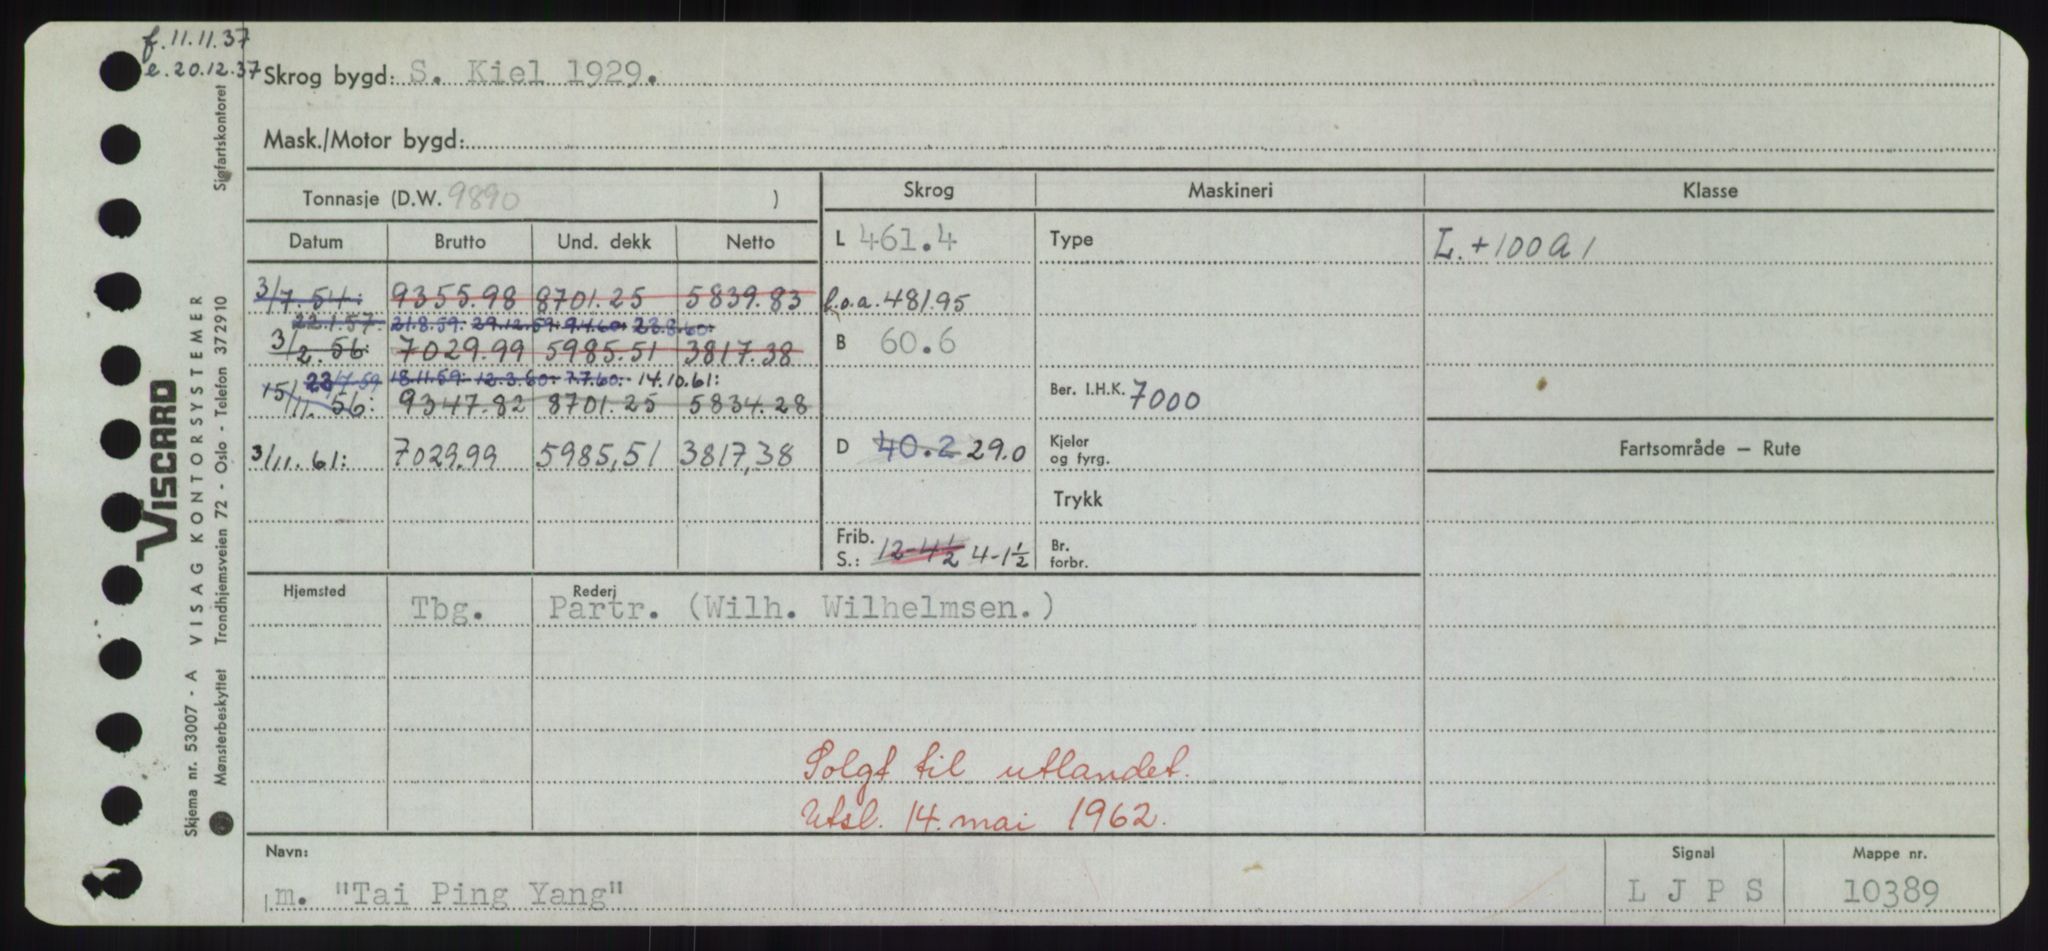 f. 11.11.37
e. 20.12.37
Skrog bygd: S. Kiel 1929.
Mask./Motor bygd:
Tonnasje (D.W. 9890 )
Skrog Maskineri Klasse
Datum Brutto Und. dekk Netto
L 461.4 Type L. +100 A 1
3/7. 54: 9355.98 8701.25 5839.83 l.o.a. 481.95
22.1.57. 21.8.59. 29.12.59. 9.4.60. 23.8.60.
3/2. 56: 7029.99 5985.51 3817.38 B 60.6
23/7.59 18.11.59. 12.3.60. 7.7.60. 14.10.61:
15/11. 56: 9347.82 8701.25 5834.28 Ber. I.H.K. 7000
3/11. 61: 7029.99 5985,51 3817,38 D 40.2 29.0 Kjeler og fyrg.
Fartsområde — Rute
Trykk
Frib. S.: 12-4½ 4-1½ Br. forbr.
Hjemsted Tbg. Rederj Partr. (Wilh. Wilhelmsen.)
Solgt til utlandet.
Utsl. 14. mai 1962.
Navn: m. "Tai Ping Yang"
Signal L J P S
Mappe nr. 10389
VISCARD
Skjema nr. 53007 - A VISAG KONTORSYSTEMER
Mønsterbeskyttet Trondhjemsveien 72 - Oslo - Telefon 372910 Sjøfartskontoret